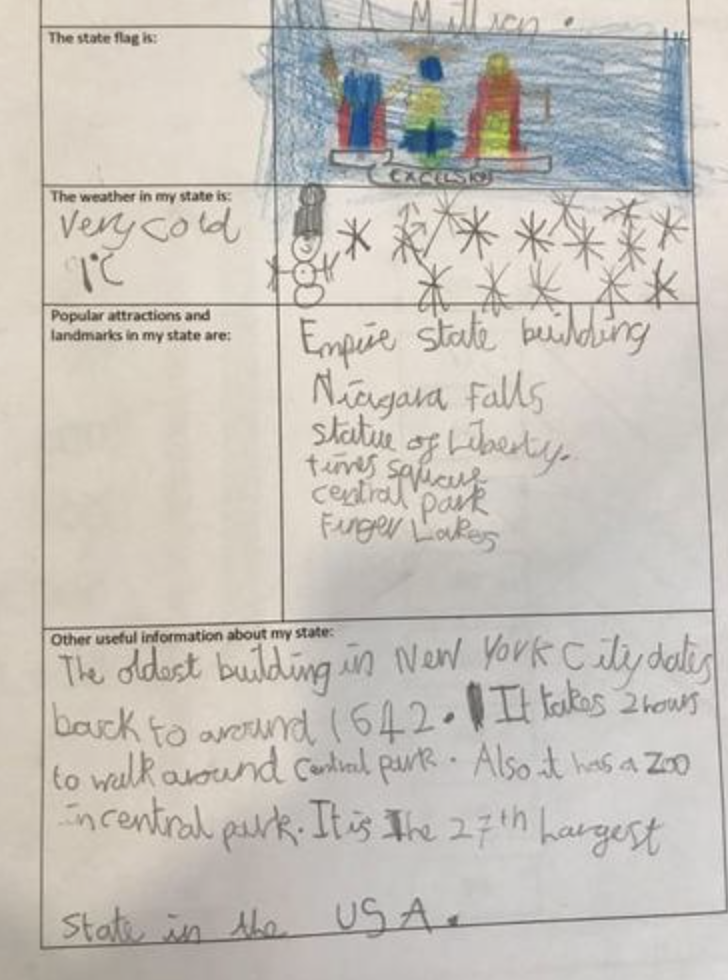 A Million.
The state flag is:
EXCELSIOR
The weather in my state is:
Very cold
1°C
Popular attractions and
landmarks in my state are:
Empire state building
Niagara Falls
Statue of Liberty.
times square
central park
Finger Lakes
Other useful information about my state:
The oldest building in New York City dates
back to around 1642. It takes 2 hours
to walk around Central park. Also it has a Zoo
in central park. It is The 27th Largest
State in the USA.